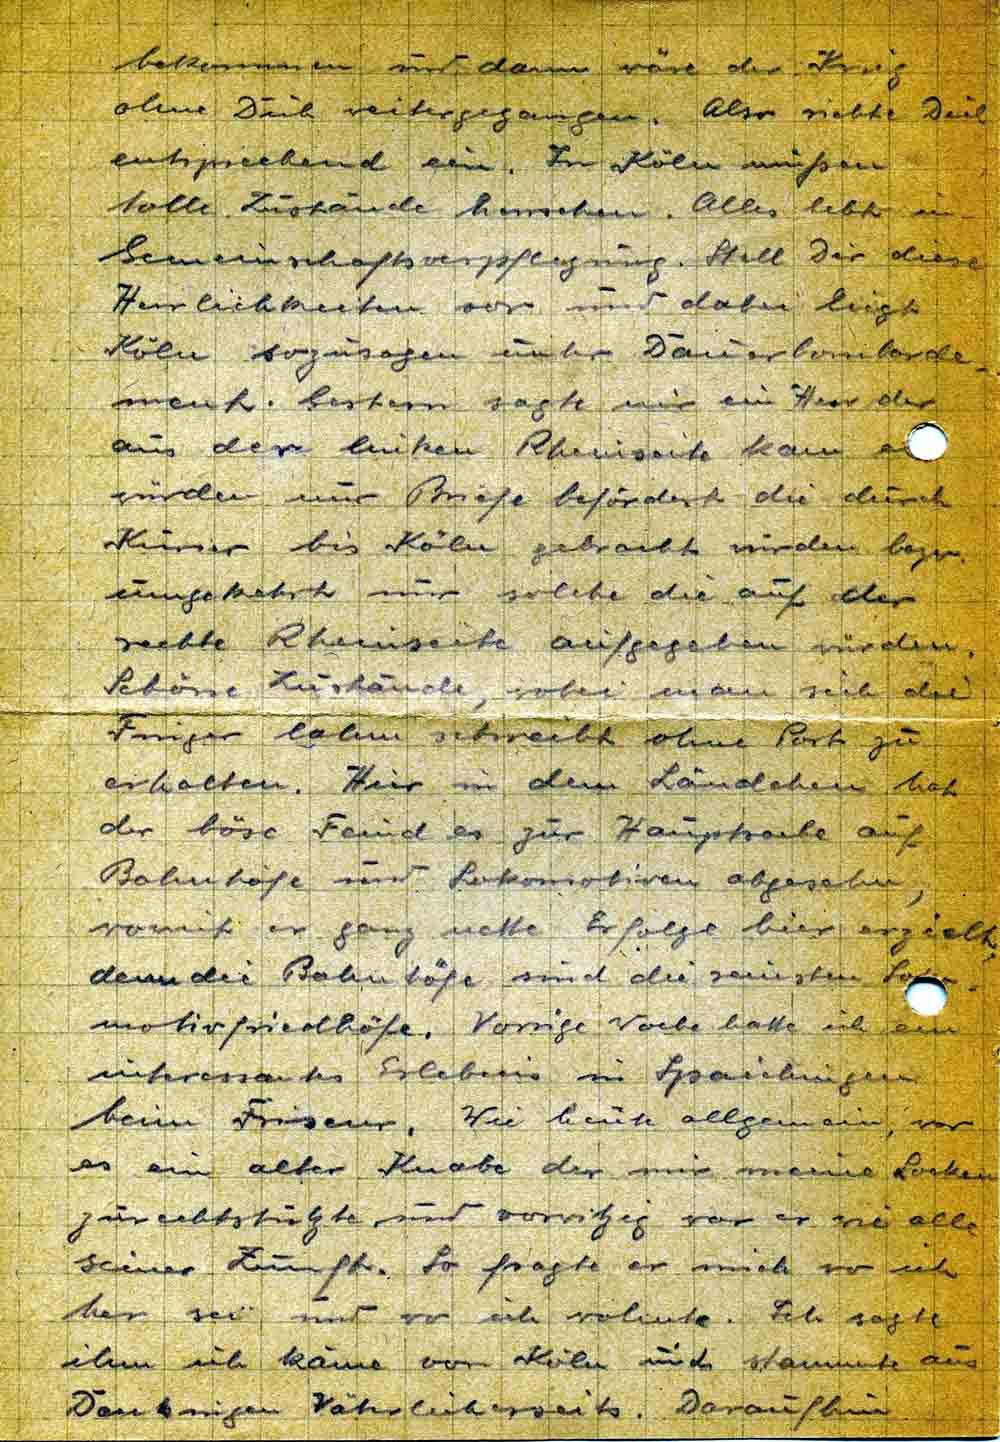 bekommen und dann wäre der Krieg
ohne Dich weitergegangen. Also richte Dich
entsprechend ein. In Köln müßen
tolle Zustände herrschen. Alles lebt in
Gemeinschaftsverpflegung. Stell Dir diese
Herrlichkeiten vor und dabei liegt
Köln sozusagen unter Dauerbombarde-
ment. Gestern sagte mir ein Herr der
aus der linken Rheinseite kam es
würden nur Briefe befördert die durch
Kurier bis Köln gebracht würden bezw.
umgekehrt nur solche die auf der
rechte Rheinseite aufgegeben würden.
Schöne Zustände, wobei man sich die
Finger lahm schreibt ohne Post zu
erhalten. Hier in dem Ländchen hat
der böse Feind es zur Hauptsache auf
Bahnhöfe und Lokomotiven abgesehn,
womit er ganz nette Erfolge hier erzielt,
denn die Bahnhöfe sind die reinsten Loko-
motivfriedhöfe. Vorige Woche hatte ich ein
interessantes Erlebnis in Spaichingen
beim Friseur. Wie heute allgemein, war
es ein alter Knabe der mir meine Locken
zurechtstutzte und vorwitzig war er wie alle
seiner Zunft. So fragte er mich wo ich
her sei und wo ich wohnte. Ich sagte
ihm ich käme von Köln und stammte aus
väterlicherseits. Daraufhin